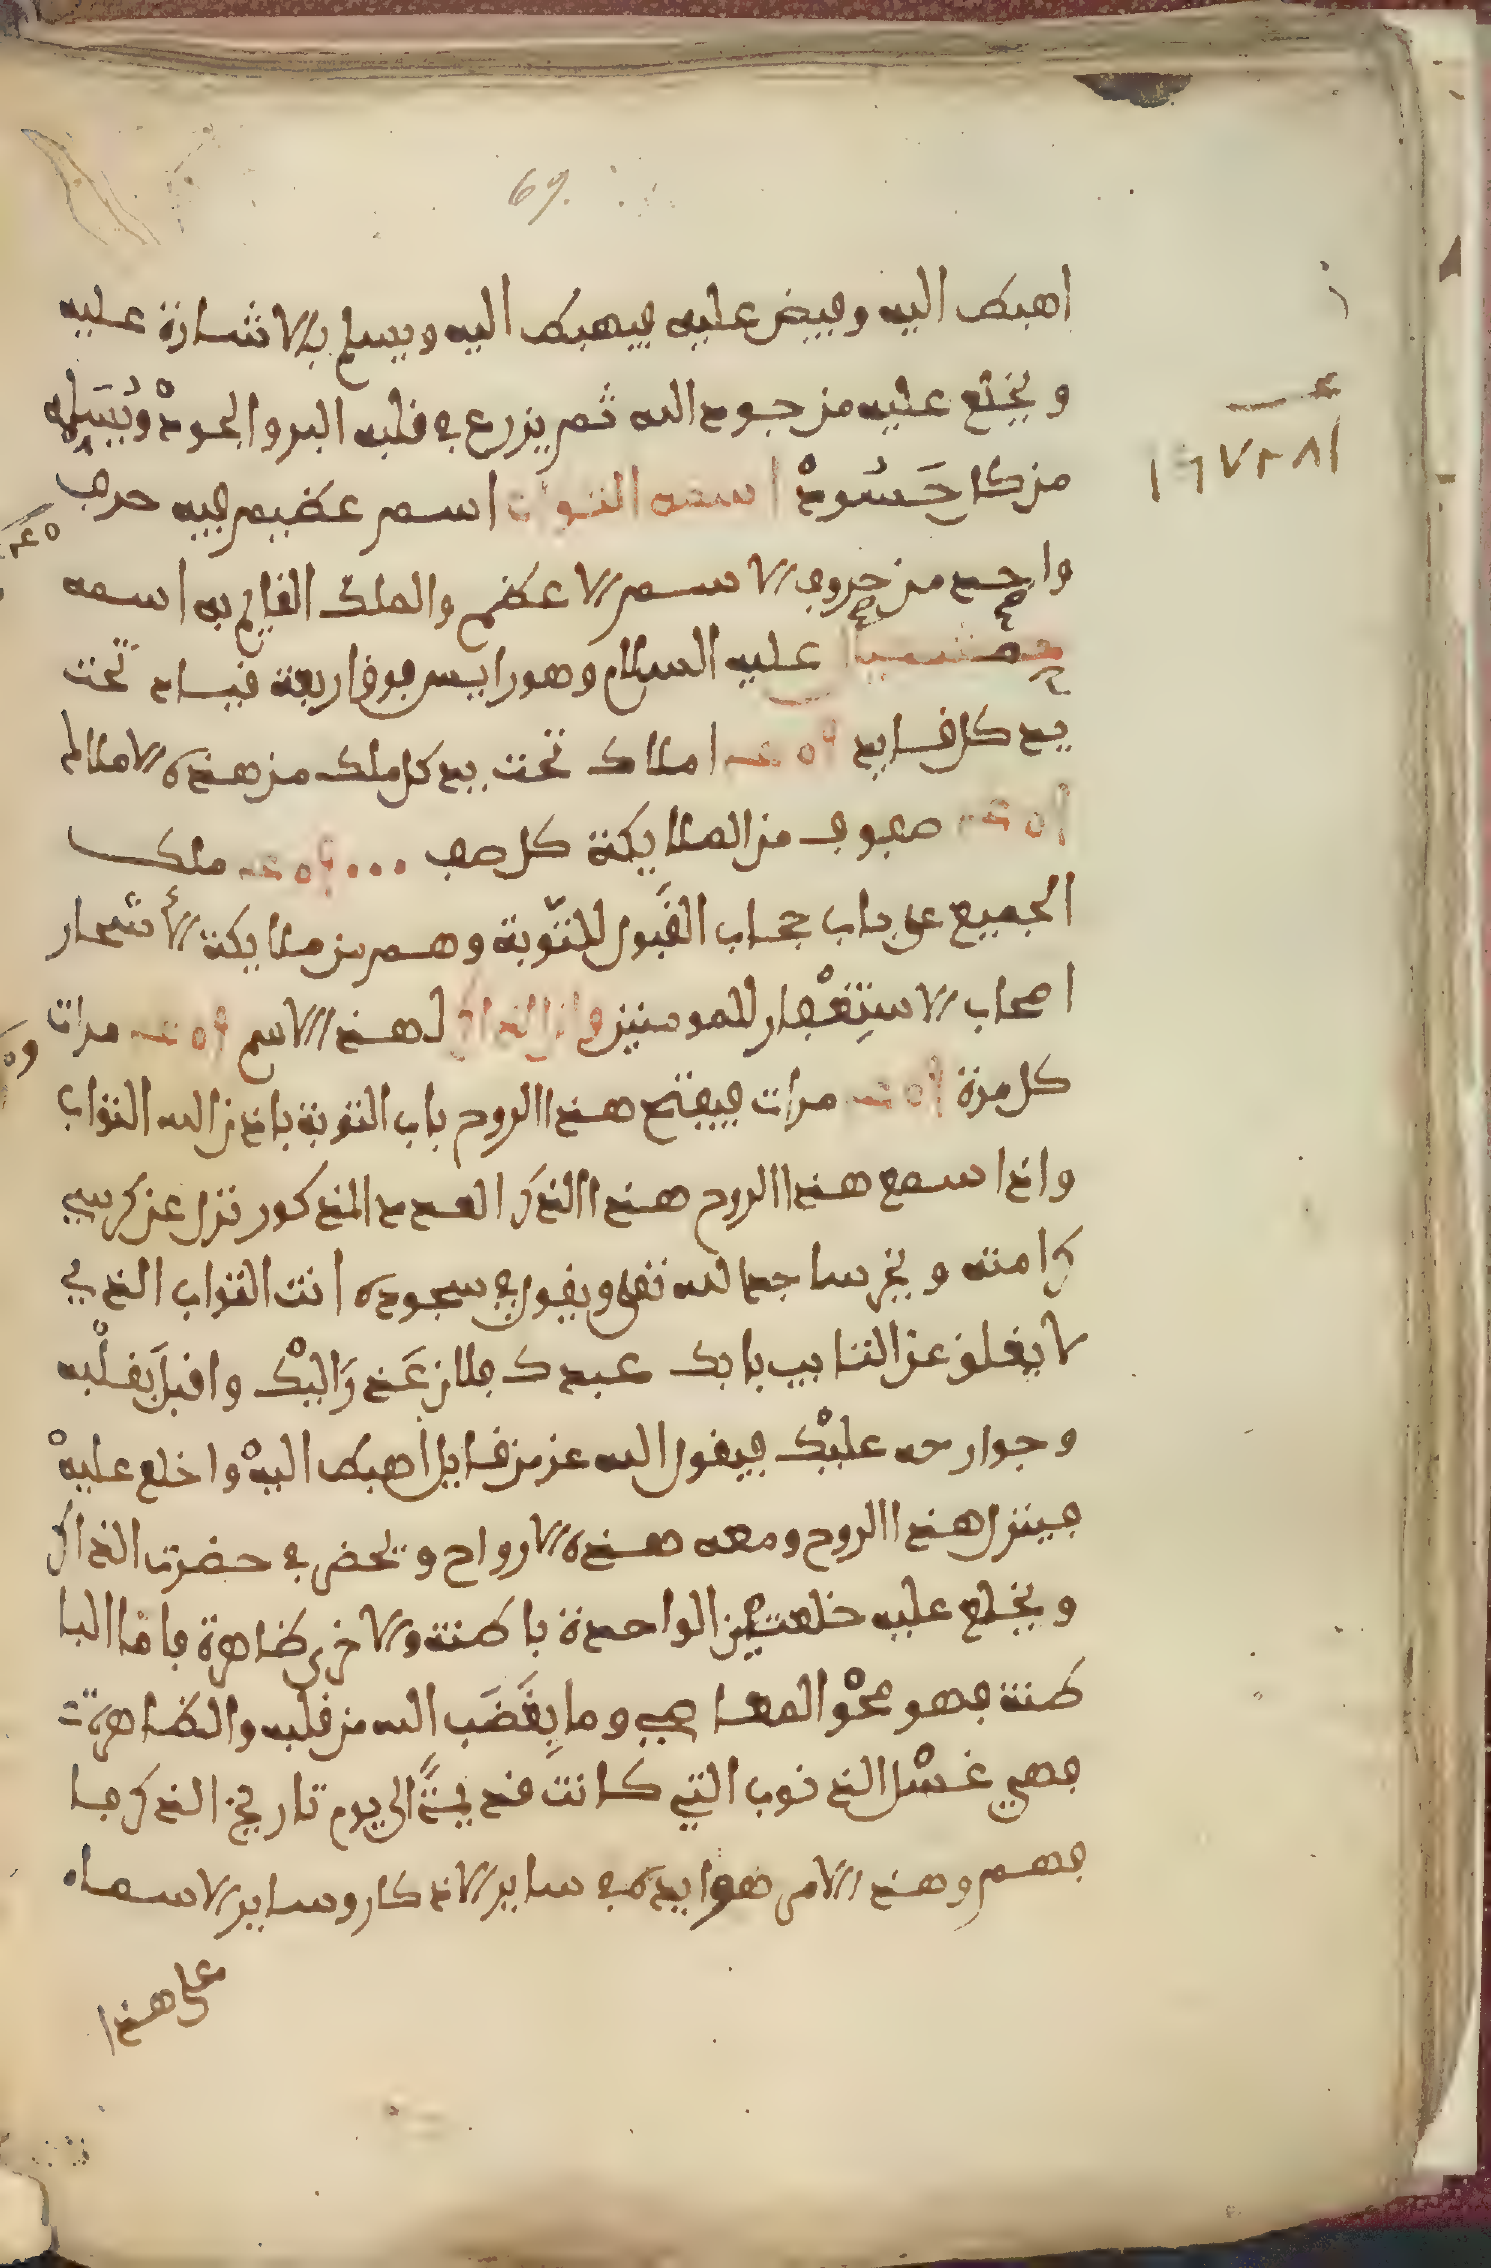 69.
اهبط اليه وفيض عليه فيهبط اليه ويسلم بالاشارة عليه
ويخلع عليه من جود الله ثم يزرع في قلبه البر والجودْ ويُسَلمه
من كل حَسُودْ اسمه التواب اسم عظيم فيه حرف
واحد من حروف الاسم الاعظم والملك القايم به اسمه
عليه السلام وهو رايس فوق اربعة قياد تحت
يد كل قايد املاك تحت يد كل ملك من هذه الاملاك
صفوف من الملايكة كل صف ملك
الجميع على باب حجاب القَبول للتّوبة وهم من ملايكة الأسحار
اصحاب الاستِغْفار للمومنين واذا الذاكر لهذا الاسم مرات
كل مرة مرات فيفتح هذا الروح باب التوبة باذن الله التواب
واذا سمع هذا الروح هذا الذكر العدد المذكور نزل عن كرسي
كرامته ويخر ساجدا لله تعلى ويقول في سجوده انت التواب الذي
لا يغلق عن التايب بابك عبدك فلان عَـذرَ اليْك واقبلَ بقلْبه
وجوارحه عليْك فيقول الله عز من قايل اهبط اليهْ واخلع عليهْ
فينزل هذا الروح ومعه هذه الارواح ويحضر في حضرت الذاكر
ويخلع عليه خلعتين الواحدة باطنة والاخرى ظاهرة فاما البا
طنة فهو محْو المعاصي وما يغَضَب الله من قلبه والظاهرة
فهي غسْل الذنوب التي كانت قديمةً الى يوم تاريخ الذكر فا
فهم وهذا الامر هوايده في ساير الاذكار وساير الاسماء
على هذا
١٦٧٢٨١